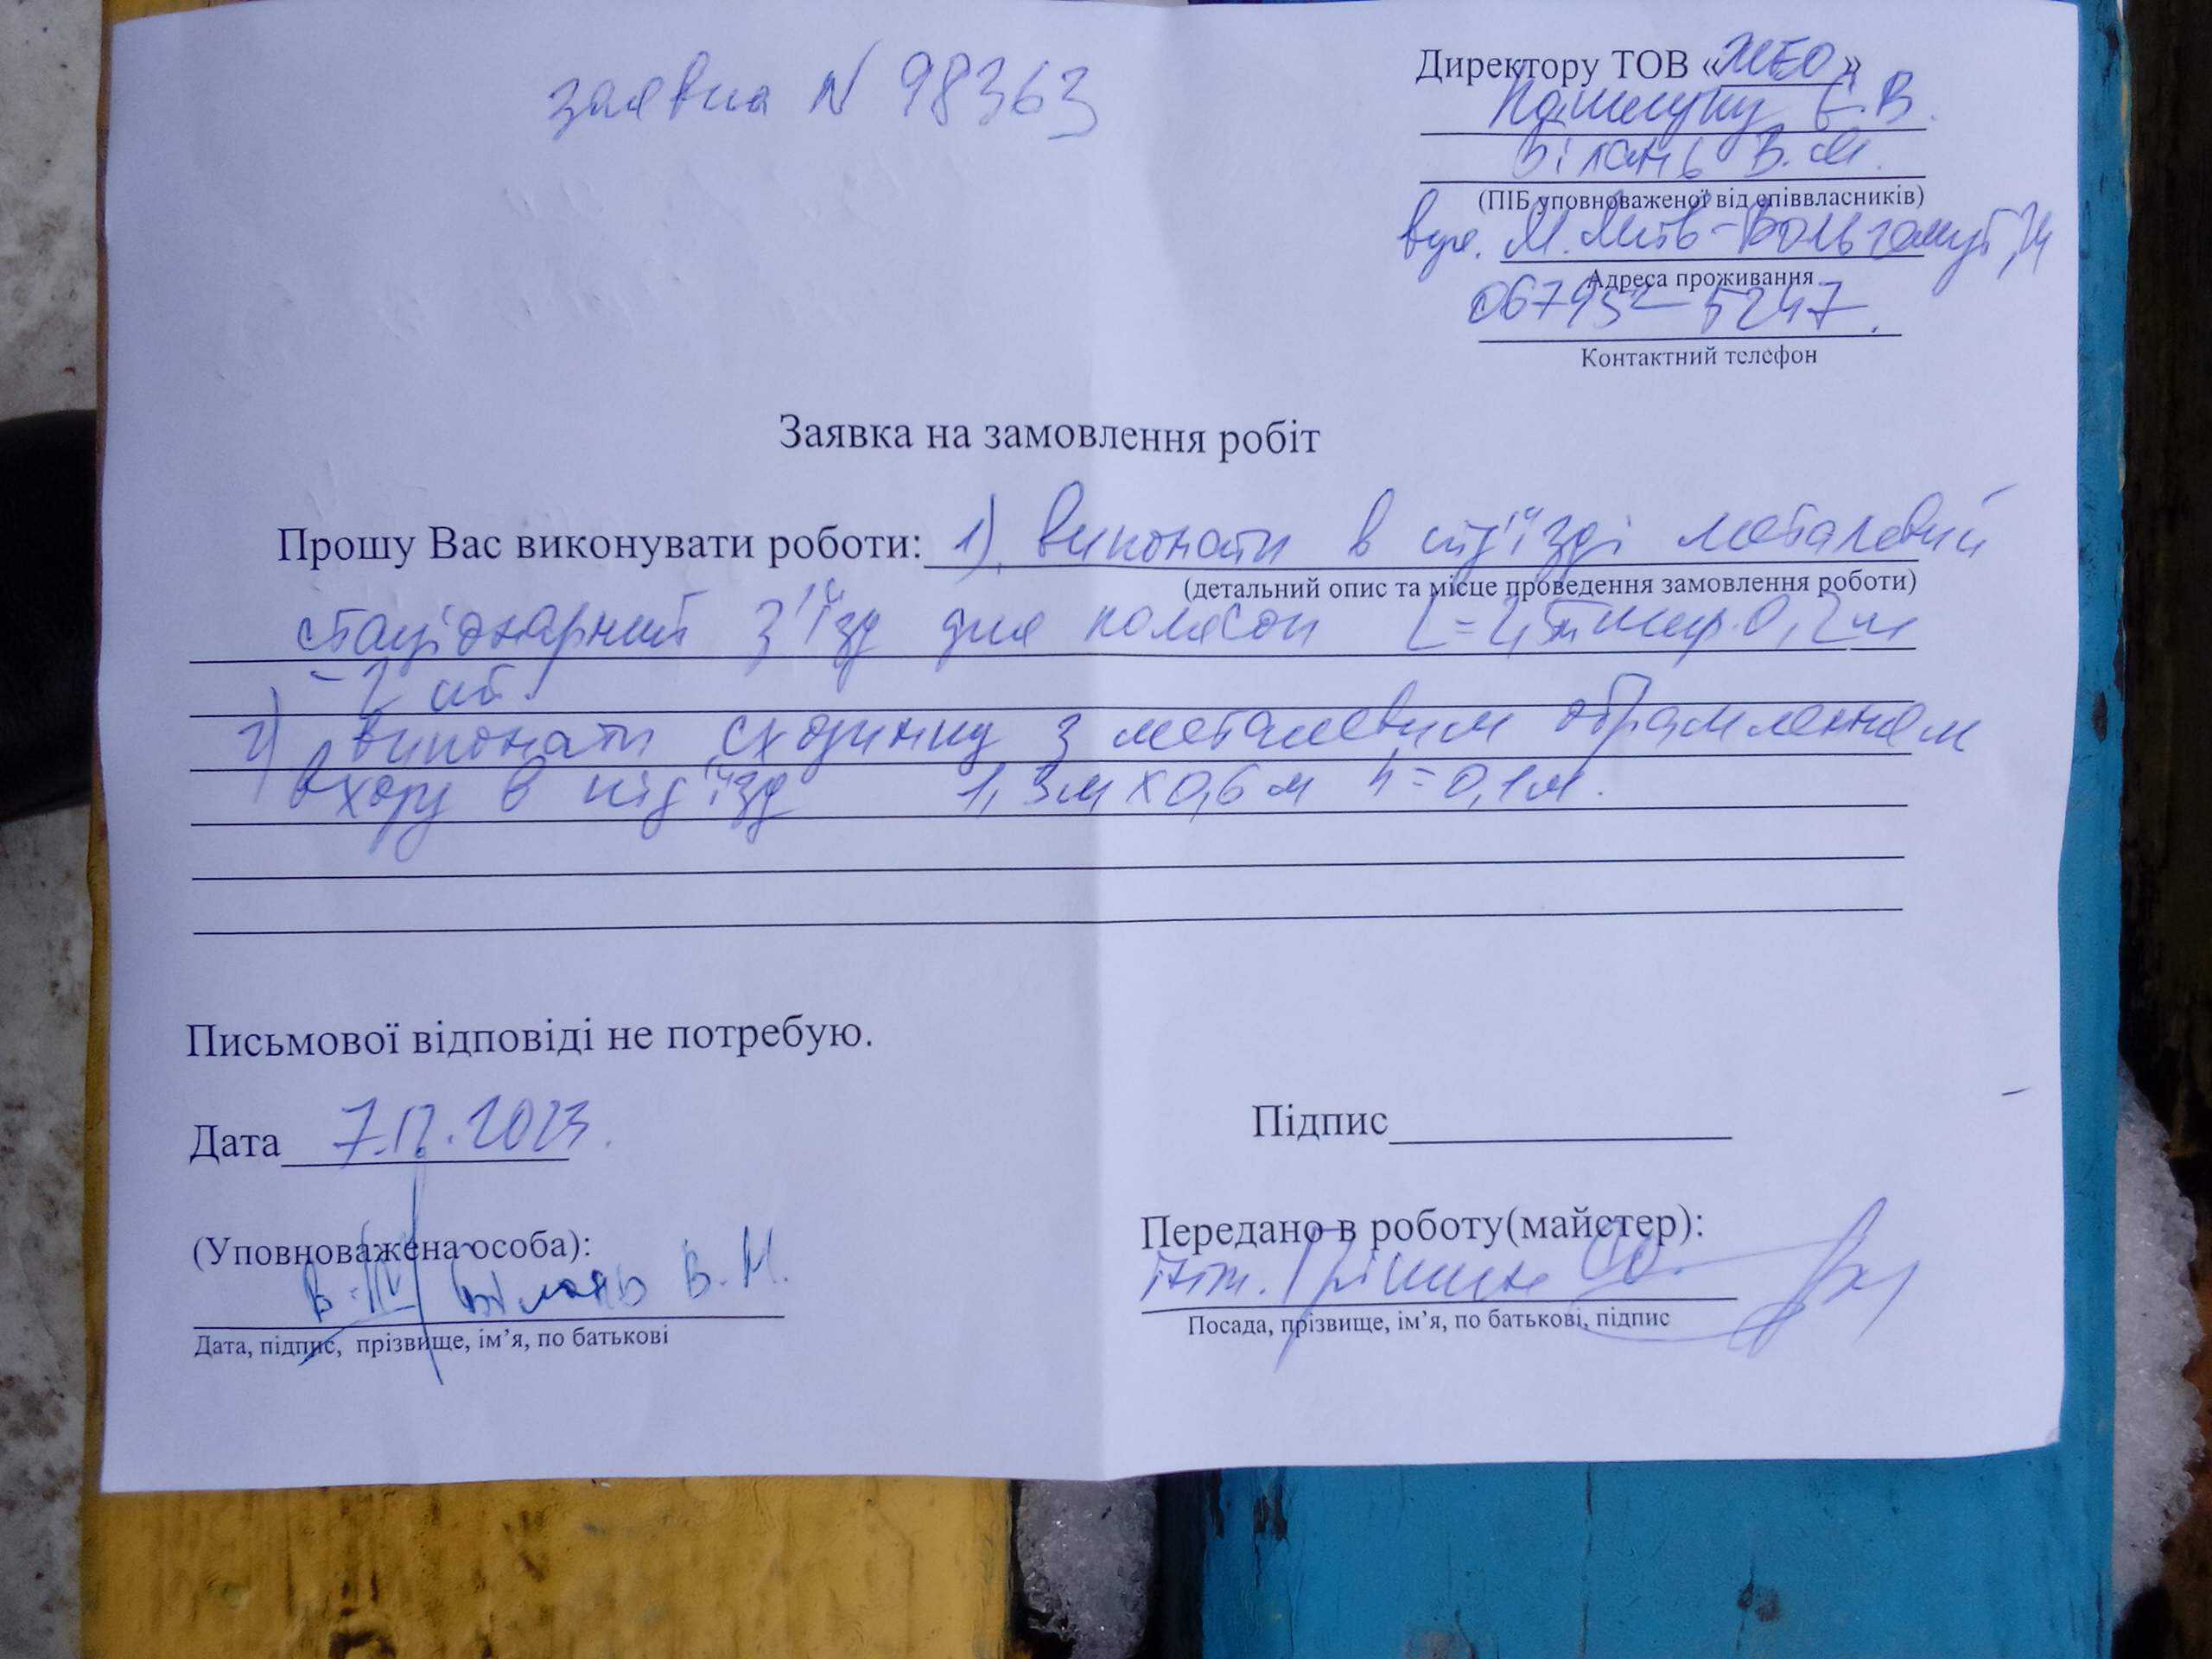 заявка N 98363
Директору ТОВ «ЖЕО»
Є.В.
Білань В.М.
(ПІБ уповноваженої від співвласників)
вул. М.
Адреса проживання
067952-5247.
Контактний телефон
Заявка на замовлення робіт
Прошу Вас виконувати роботи: 1). виконати в під'їзді металевий
(детальний опис та місце проведення замовлення роботи)
стаціонарний з'їзд для колясок L= шир. 0,2м
- 2 шт.
2) виконати сходинку з металевим обрамленням
входу в під'їзд 1,3м х 0,6м h=0,1м.
Письмової відповіді не потребую.
Дата 7.12.2023.
Підпис
(Уповноважена особа):
Білань В.М.
Дата, підпис, прізвище, ім’я, по батькові
Передано в роботу(майстер):
інж.
Посада, прізвище, ім’я, по батькові, підпис